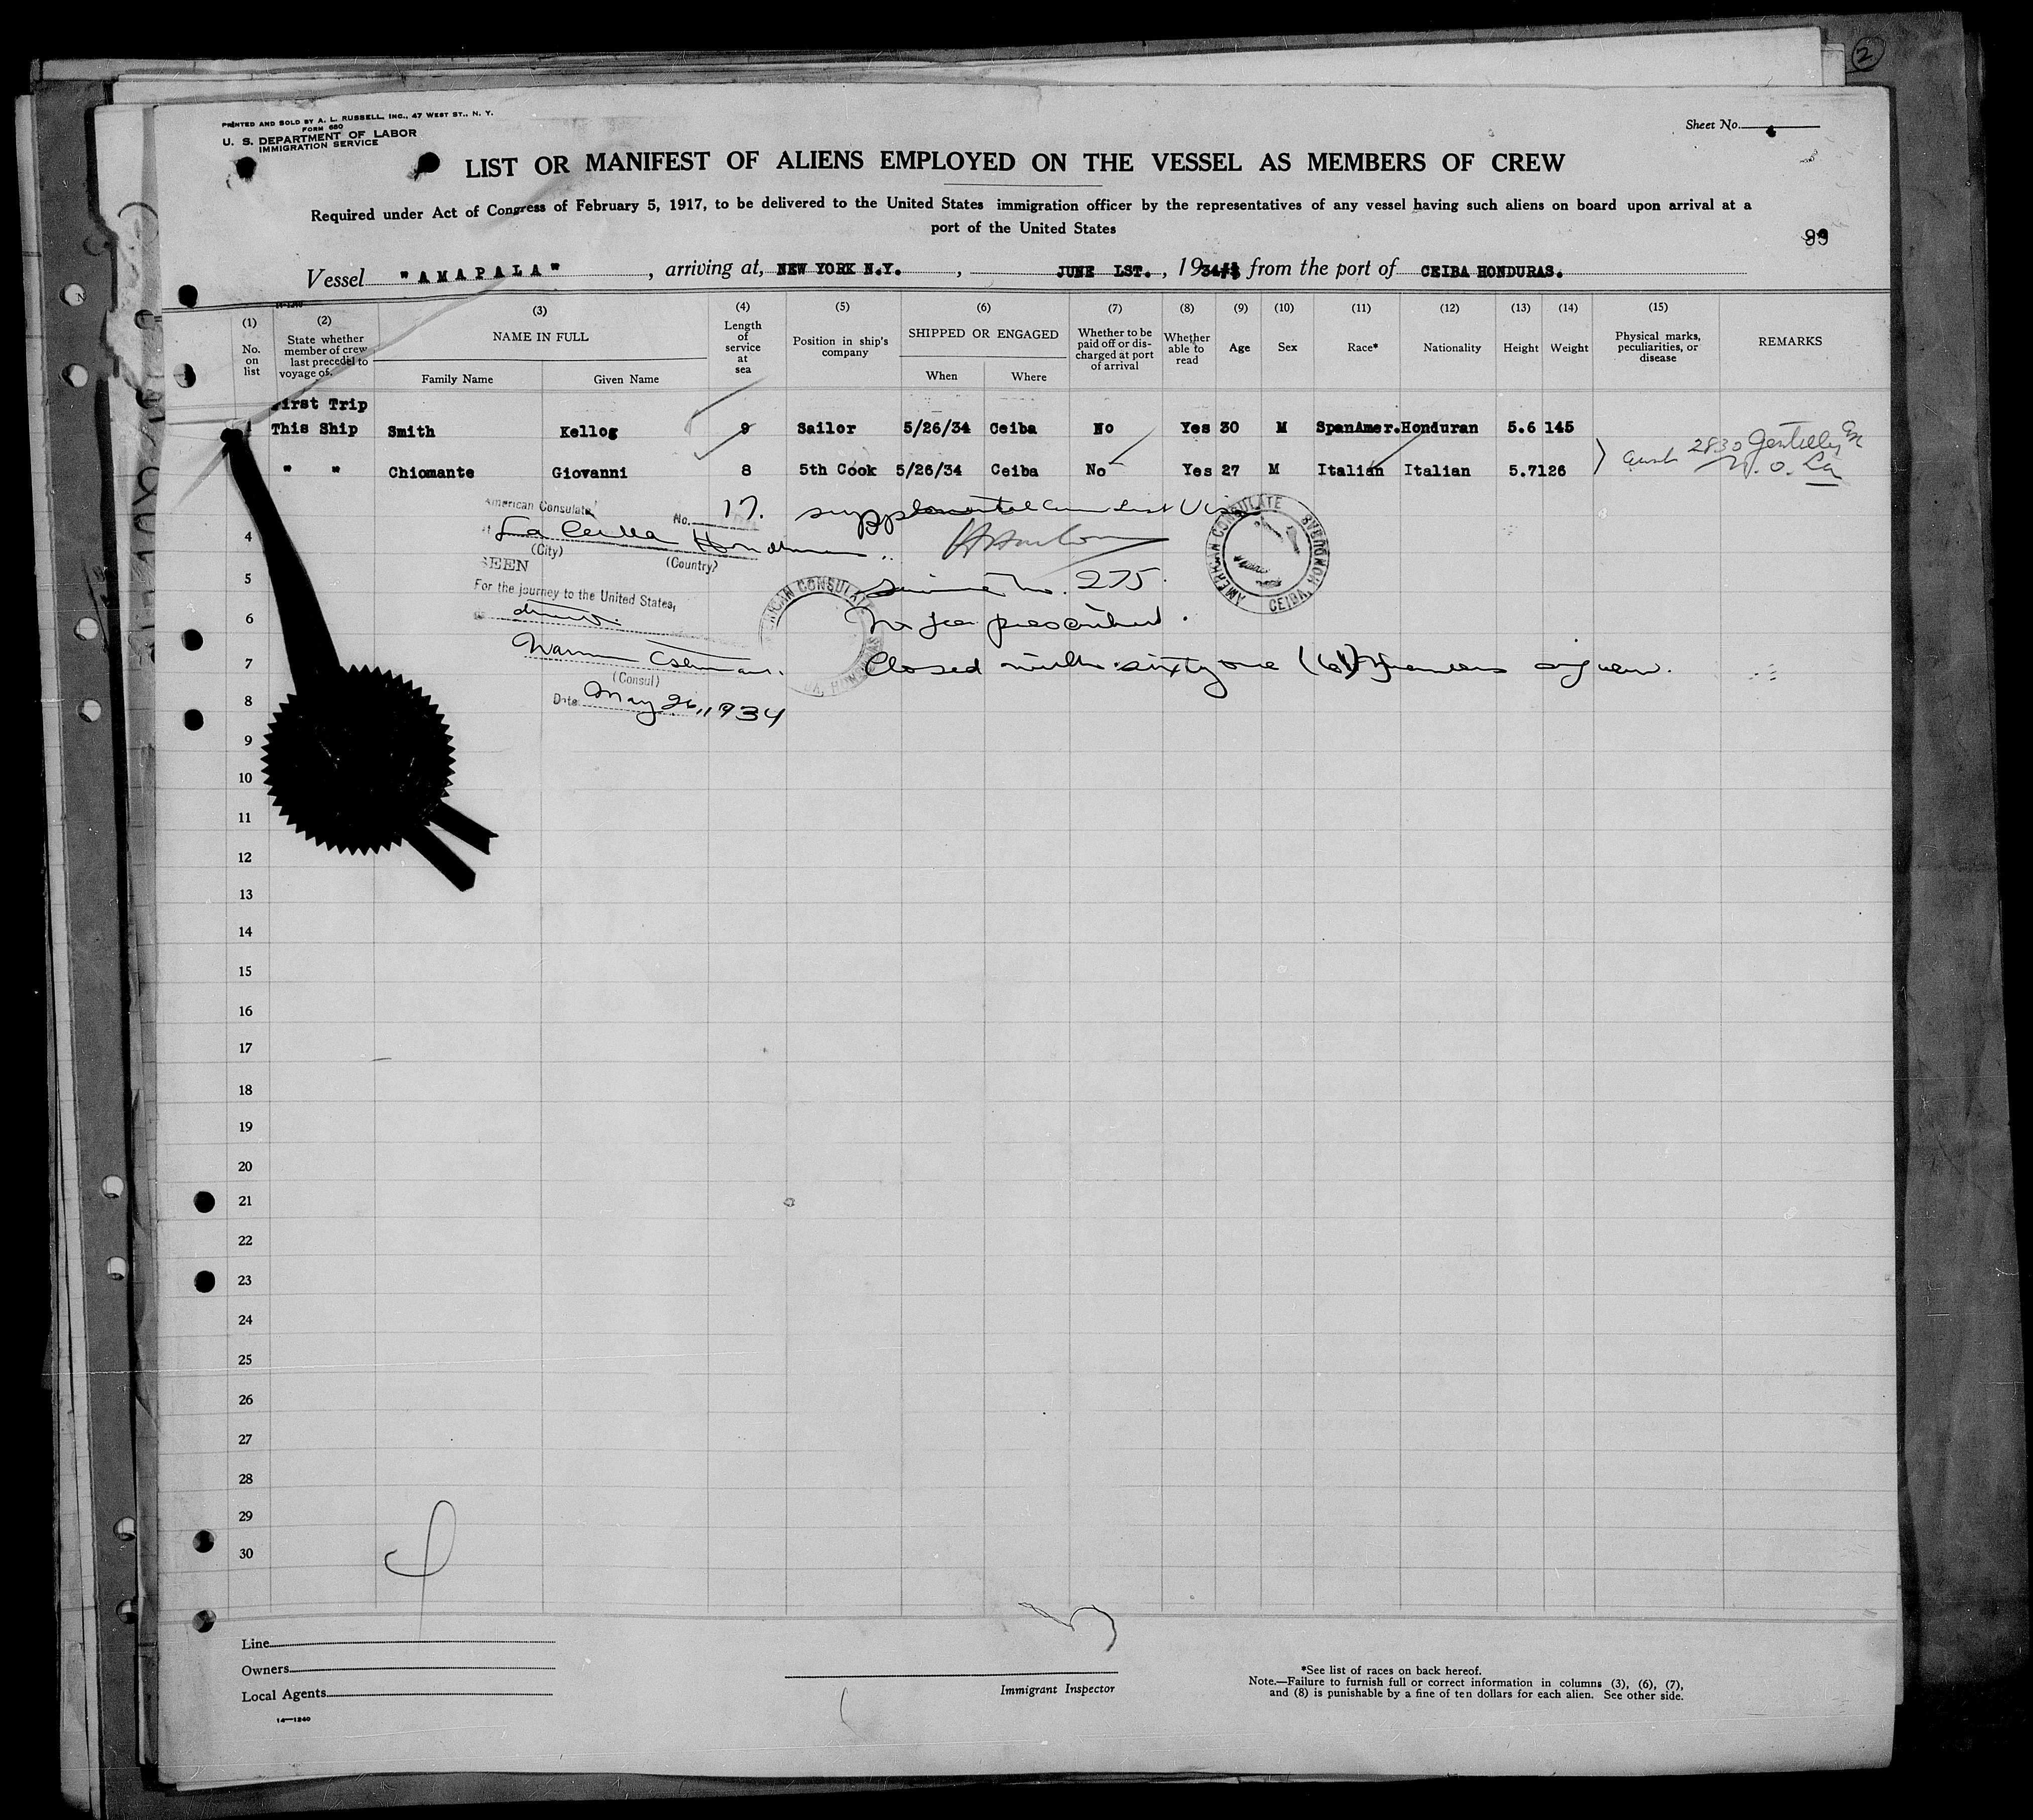 2
PRINTED AND SOLD BY A. L. RUSSELL, INC., 47 WEST ST., N. Y.
FORM 680
U. S. DEPARTMENT OF LABOR
IMMIGRATION SERVICE
Sheet No.
LIST OR MANIFEST OF ALIENS EMPLOYED ON THE VESSEL AS MEMBERS OF CREW
Required under Act of Congress of February 5, 1917, to be delivered to the United States immigration officer by the representatives of any vessel having such aliens on board upon arrival at a
port of the United States
Vessel "AMAPALA", arriving at, NEW YORK N.Y., JUNE 1ST., 1934 from the port of CEIBA HONDURAS.
(1) (2) (3) (4) (5) (6) (7) (8) (9) (10) (11) (12) (13) (14) (15)
No. on list
State whether member of crew last preceded to voyage of.
NAME IN FULL
Family Name Given Name
Length of service at sea
Position in ship's company
SHIPPED OR ENGAGED
When Where
Whether to be paid off or discharged at port of arrival
Whether able to read
Age Sex Race* Nationality Height Weight
Physical marks, peculiarities, or disease
REMARKS
First Trip
This Ship Smith Kellog 9 Sailor 5/26/34 Ceiba No Yes 30 M SpanAmer. Honduran 5.6 145
" " Chiomante Giovanni 8 5th Cook 5/26/34 Ceiba No Yes 27 M Italian Italian 5.7 126
2830 Gentilly
N. O. La
American Consulate No. 17. supplemental Crew List Visa
at La Ceiba Honduras
(City) (Country)
SEEN
For the journey to the United States,
Service No. 275.
No fee prescribed.
Warren
(Consul)
Closed with sixty one (61) members of crew.
Date May 26, 1934
AMERICAN CONSULATE CEIBA, HONDURAS
AMERICAN CONSULATE
4
5
6
7
8
9
10
11
12
13
14
15
16
17
18
19
20
21
22
23
24
25
26
27
28
29
30
Line
Owners
Local Agents
14—1240
Immigrant Inspector
*See list of races on back hereof.
Note.—Failure to furnish full or correct information in columns (3), (6), (7),
and (8) is punishable by a fine of ten dollars for each alien. See other side.